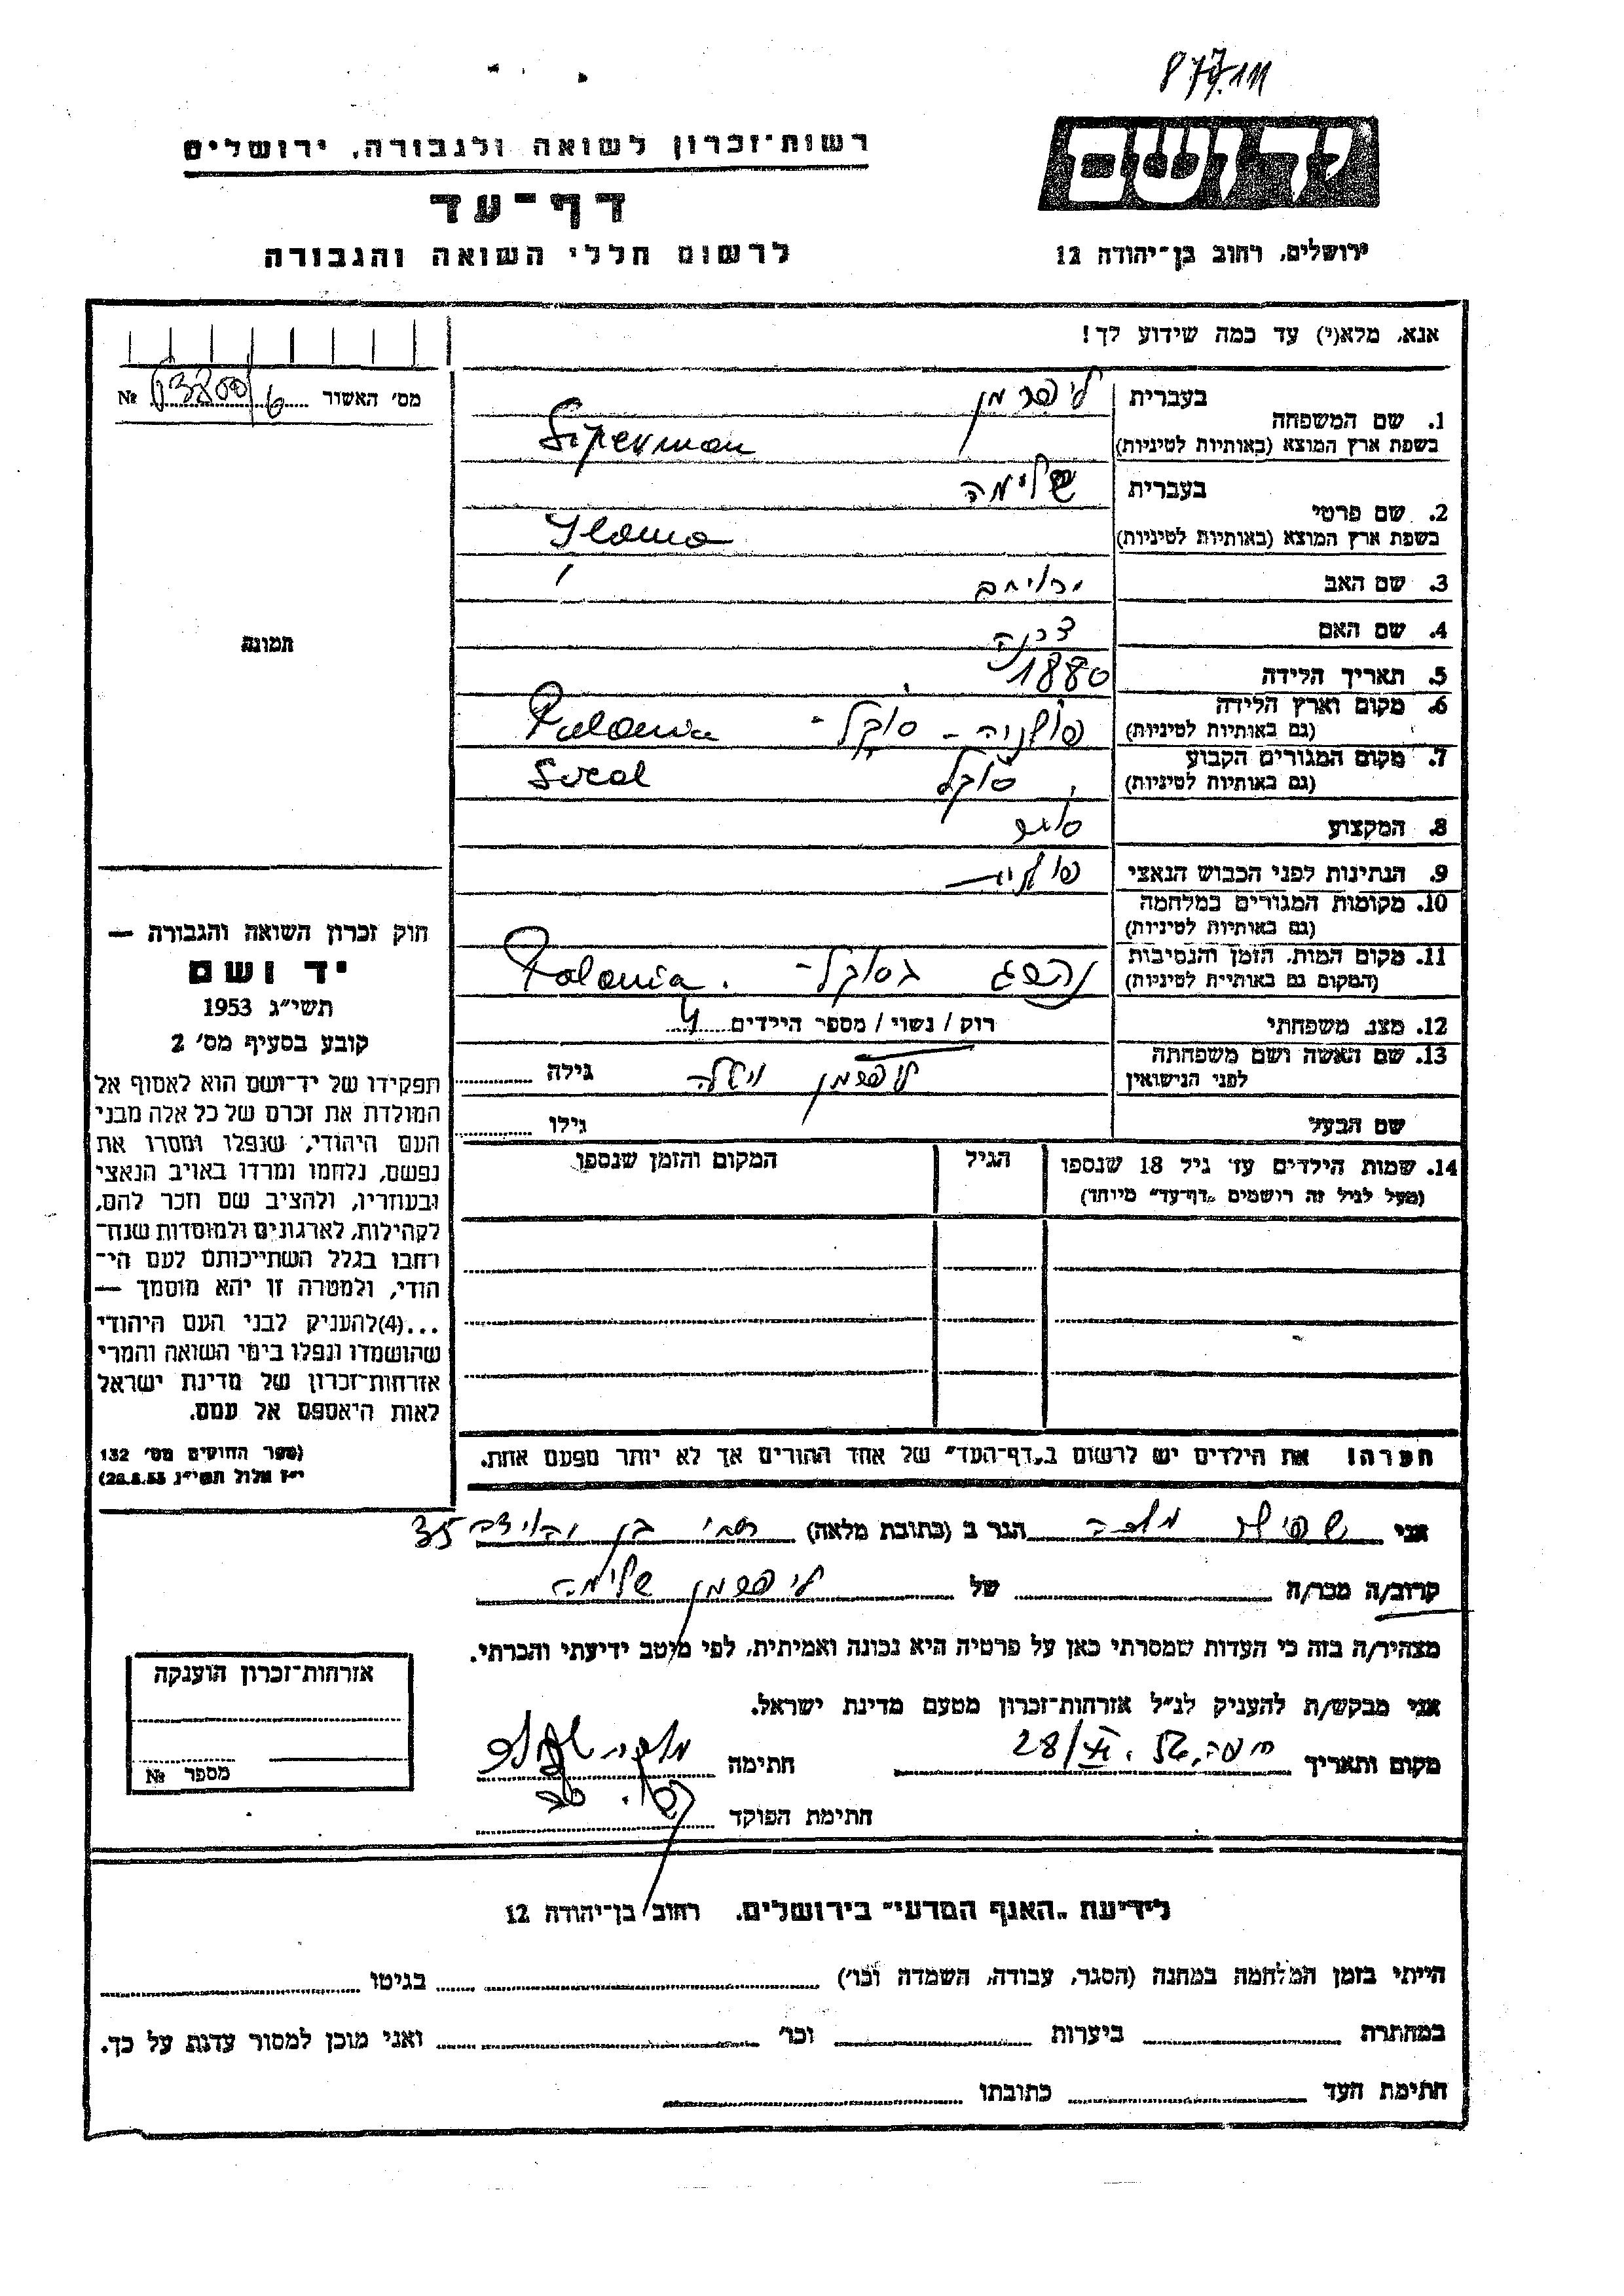 רשות־זכרון לשואה ולגבורה, ירושלים
דף־עד
לרשום חללי השואה והגבורה
יד ושם
ירושלים, רחוב בן־יהודה 12
אנא, מלא(י) עד כמה שידוע לך!
מס׳ האשור №
1. שם המשפחה
בעברית ליפרמן
בשפת ארץ המוצא (באותיות לטיניות) Liperman
2. שם פרטי
בעברית שלימה
בשפת ארץ המוצא (באותיות לטיניות)
3. שם האב
4. שם האם
5. תאריך הלידה 1880
6. מקום וארץ הלידה
(גם באותיות לטיניות) פולניה - סוקל - Polania
7. מקום המגורים הקבוע
(גם באותיות לטיניות) סוקל Socal
8. המקצוע סוחר
9. הנתינות לפני הכבוש הנאצי פולנית
10. מקומות המגורים במלחמה
(גם באותיות לטיניות)
11. מקום המות, הזמן והנסיבות
(המקום גם באותיות לטיניות) נהרג בסוקל - Polania.
12. מצב משפחתי רוק / נשוי / מספר הילדים 4
13. שם האשה ושם משפחתה
לפני הנישואין ליפרמן גילה
שם הבעל גילו
14. שמות הילדים עד גיל 18 שנספו הגיל המקום והזמן שנספו
(מעל לגיל זה רושמים „דף־עד” מיוחד)
הערה! את הילדים יש לרשום ב„דף־העד” של אחד ההורים אך לא יותר מפעם אחת.
תמונה
חוק זכרון השואה והגבורה —
יד ושם
תשי״ג 1953
קובע בסעיף מס׳ 2
תפקידו של יד־ושם הוא לאסוף אל
המולדת את זכרם של כל אלה מבני
העם היהודי, שנפלו ומסרו את
נפשם, נלחמו ומרדו באויב הנאצי
ובעוזריו, ולהציב שם וזכר להם,
לקהילות, לארגונים ולמוסדות שנח־
רחבו בגלל השתייכותם לעם הי־
הודי, ולמטרה זו יהא מוסמך —
...(4)להעניק לבני העם היהודי
שהושמדו ונפלו בימי השואה והמרי
אזרחות־זכרון של מדינת ישראל
לאות היאספם אל עמם.
(ספר החוקים מס׳ 132
י״ז אלול תשי״ג 28.8.53)
אני הגר ב (כתובת מלאה) 35
קרוב/ה מכר/ה של ליפרמן שלימה
מצהיר/ה בזה כי העדות שמסרתי כאן על פרטיה היא נכונה ואמיתית, לפי מיטב ידיעתי והכרתי.
אני מבקש/ת להעניק לנ״ל אזרחות־זכרון מטעם מדינת ישראל.
מקום ותאריך חיפה, 28/ חתימה
חתימת הפוקד
אזרחות־זכרון הוענקה
מספר №
לידיעת „האגף המדעי” בירושלים, רחוב בן־יהודה 12
הייתי בזמן המלחמה במחנה (הסגר, עבודה, השמדה וכו׳) בגיטו
במחתרת ביערות וכו׳ ואני מוכן למסור עדות על כך.
חתימת העד כתובתו